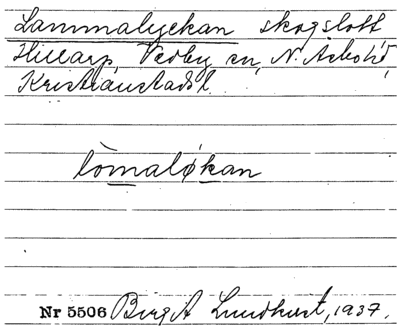 Lammalyckan skogslott
Hillarp, Vedby sn, N. Åsbo hd,
Kristianstads l.
lòmaløkan
Nr 5506 Birgit Lundkvist, 1937.